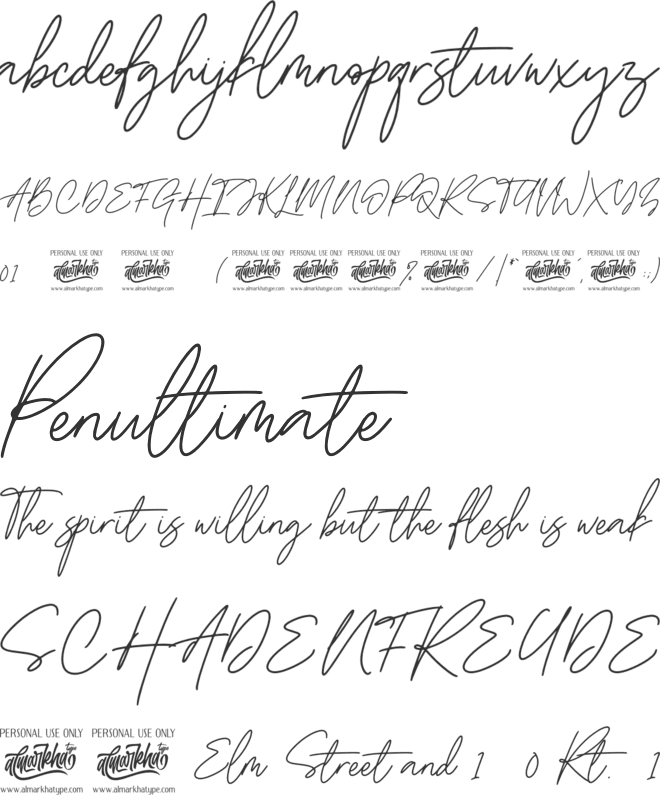 abcdefghijklmnopqrstuvwxyz
ABCDEFGHIJKLMNOPQRSTUVWXYZ
01 PERSONAL USE ONLY almarkha type www.almarkhatype.com PERSONAL USE ONLY almarkha type www.almarkhatype.com ( PERSONAL USE ONLY almarkha type www.almarkhatype.com PERSONAL USE ONLY almarkha type www.almarkhatype.com PERSONAL USE ONLY almarkha type www.almarkhatype.com % PERSONAL USE ONLY almarkha type www.almarkhatype.com / | " * ` PERSONAL USE ONLY almarkha type www.almarkhatype.com ´ , PERSONAL USE ONLY almarkha type www.almarkhatype.com : ; )
Penultimate
The spirit is willing but the flesh is weak
SCHADENFREUDE
PERSONAL USE ONLY almarkha type www.almarkhatype.com PERSONAL USE ONLY almarkha type www.almarkhatype.com Elm Street and 1 0 Rt. 1